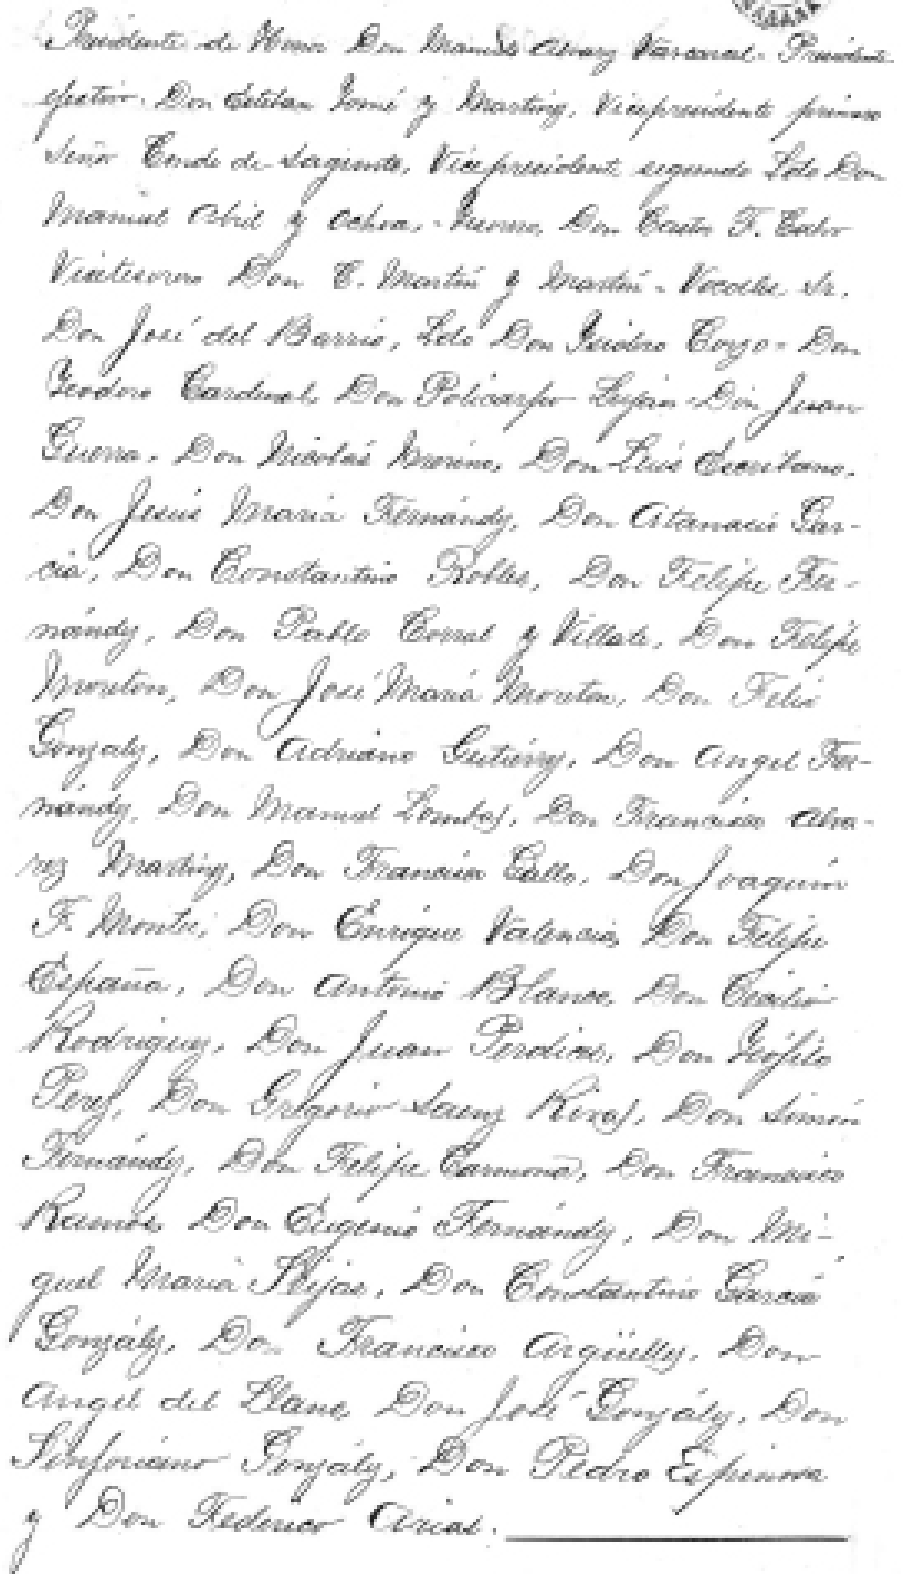 Presidente de Honor Don Alvarez Presidente
efectivo. Don Esteban Tomé y Martinz, Vicepresidente primero
Señor Conde de Sagunto, Vicepresidente segundo Ldo Don
Manuel Abril y Ochoa, Don Casto F. Calvo
Don C. Martin y Martin - Vocales Sr.
Don José del Barrio, Ldo Don Isidro Corzo - Don
Teodoro Cardinal, Don Policarpo Lujan - Don Juan
Guerra, Don Nicolás Merino, Don Luis Escribano,
Don Jesús Maria Fernándz, Don Atanacio Gar-
cia, Don Constantino Robles, Don Felipe Fer-
nándz, Don Pablo Corral y Villate, Don Felipe
Mouton, Don José Maria Mouton, Don Felix
Gonzalz, Don Adriano Gutierrz, Don Angel Fer-
nándz, Don Manuel Lombas, Don Francisco Alva-
rez Martinz, Don Francisco Gallo, Don Joaquin
F. Montes, Don Enrique Valencia, Don Felipe
España, Don Antonio Blanco, Don Cecilio
Rodriguez, Don Juan Perdices, Don Teófilo
Perez, Don Gregorio Saenz Rivas, Don Simón
Fernándz, Don Felipe Carmona, Don Francisco
Ramos Don Eugenio Fernándz, Don Mi-
guel Maria Don Constantino Garcia
Gonzálz, Don Francisco Argüellz, Don
Angel del Llano, Don José Gonzálz, Don
Sinforiano Gonzálz, Don Pedro Espinosa
y Don Federico Arias.